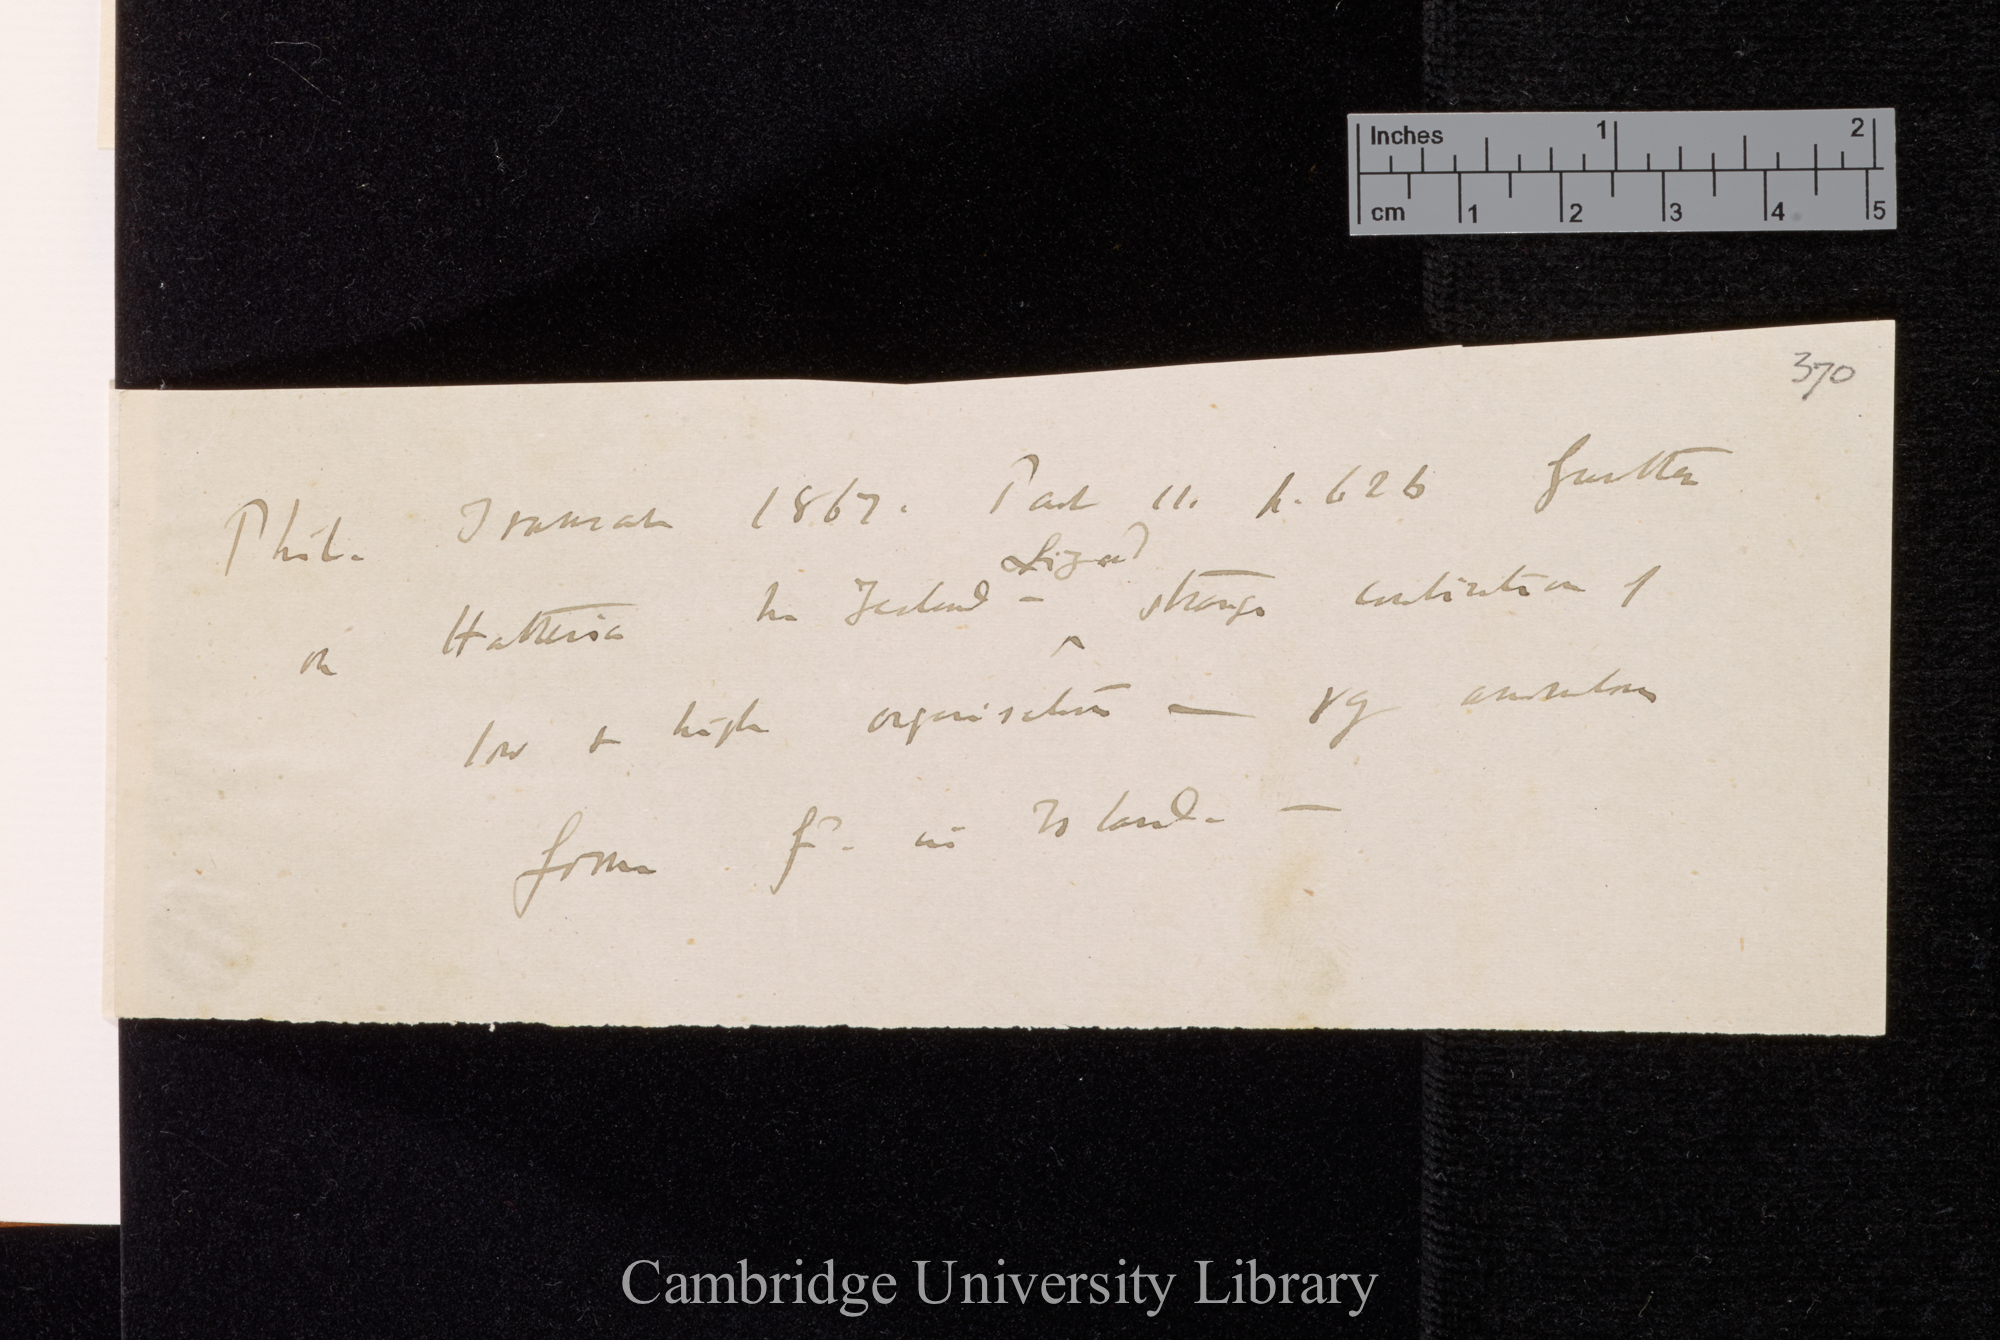 Inches 1 2
cm 1 2 3 4 5
370
Phil. Transact 1867. Part II. p. 626 Gunther
Lizard
on Hatteria N. Zealand – ^ strange combination of
low & high organisation — as anomalous
form in Island. —
Cambridge University Library